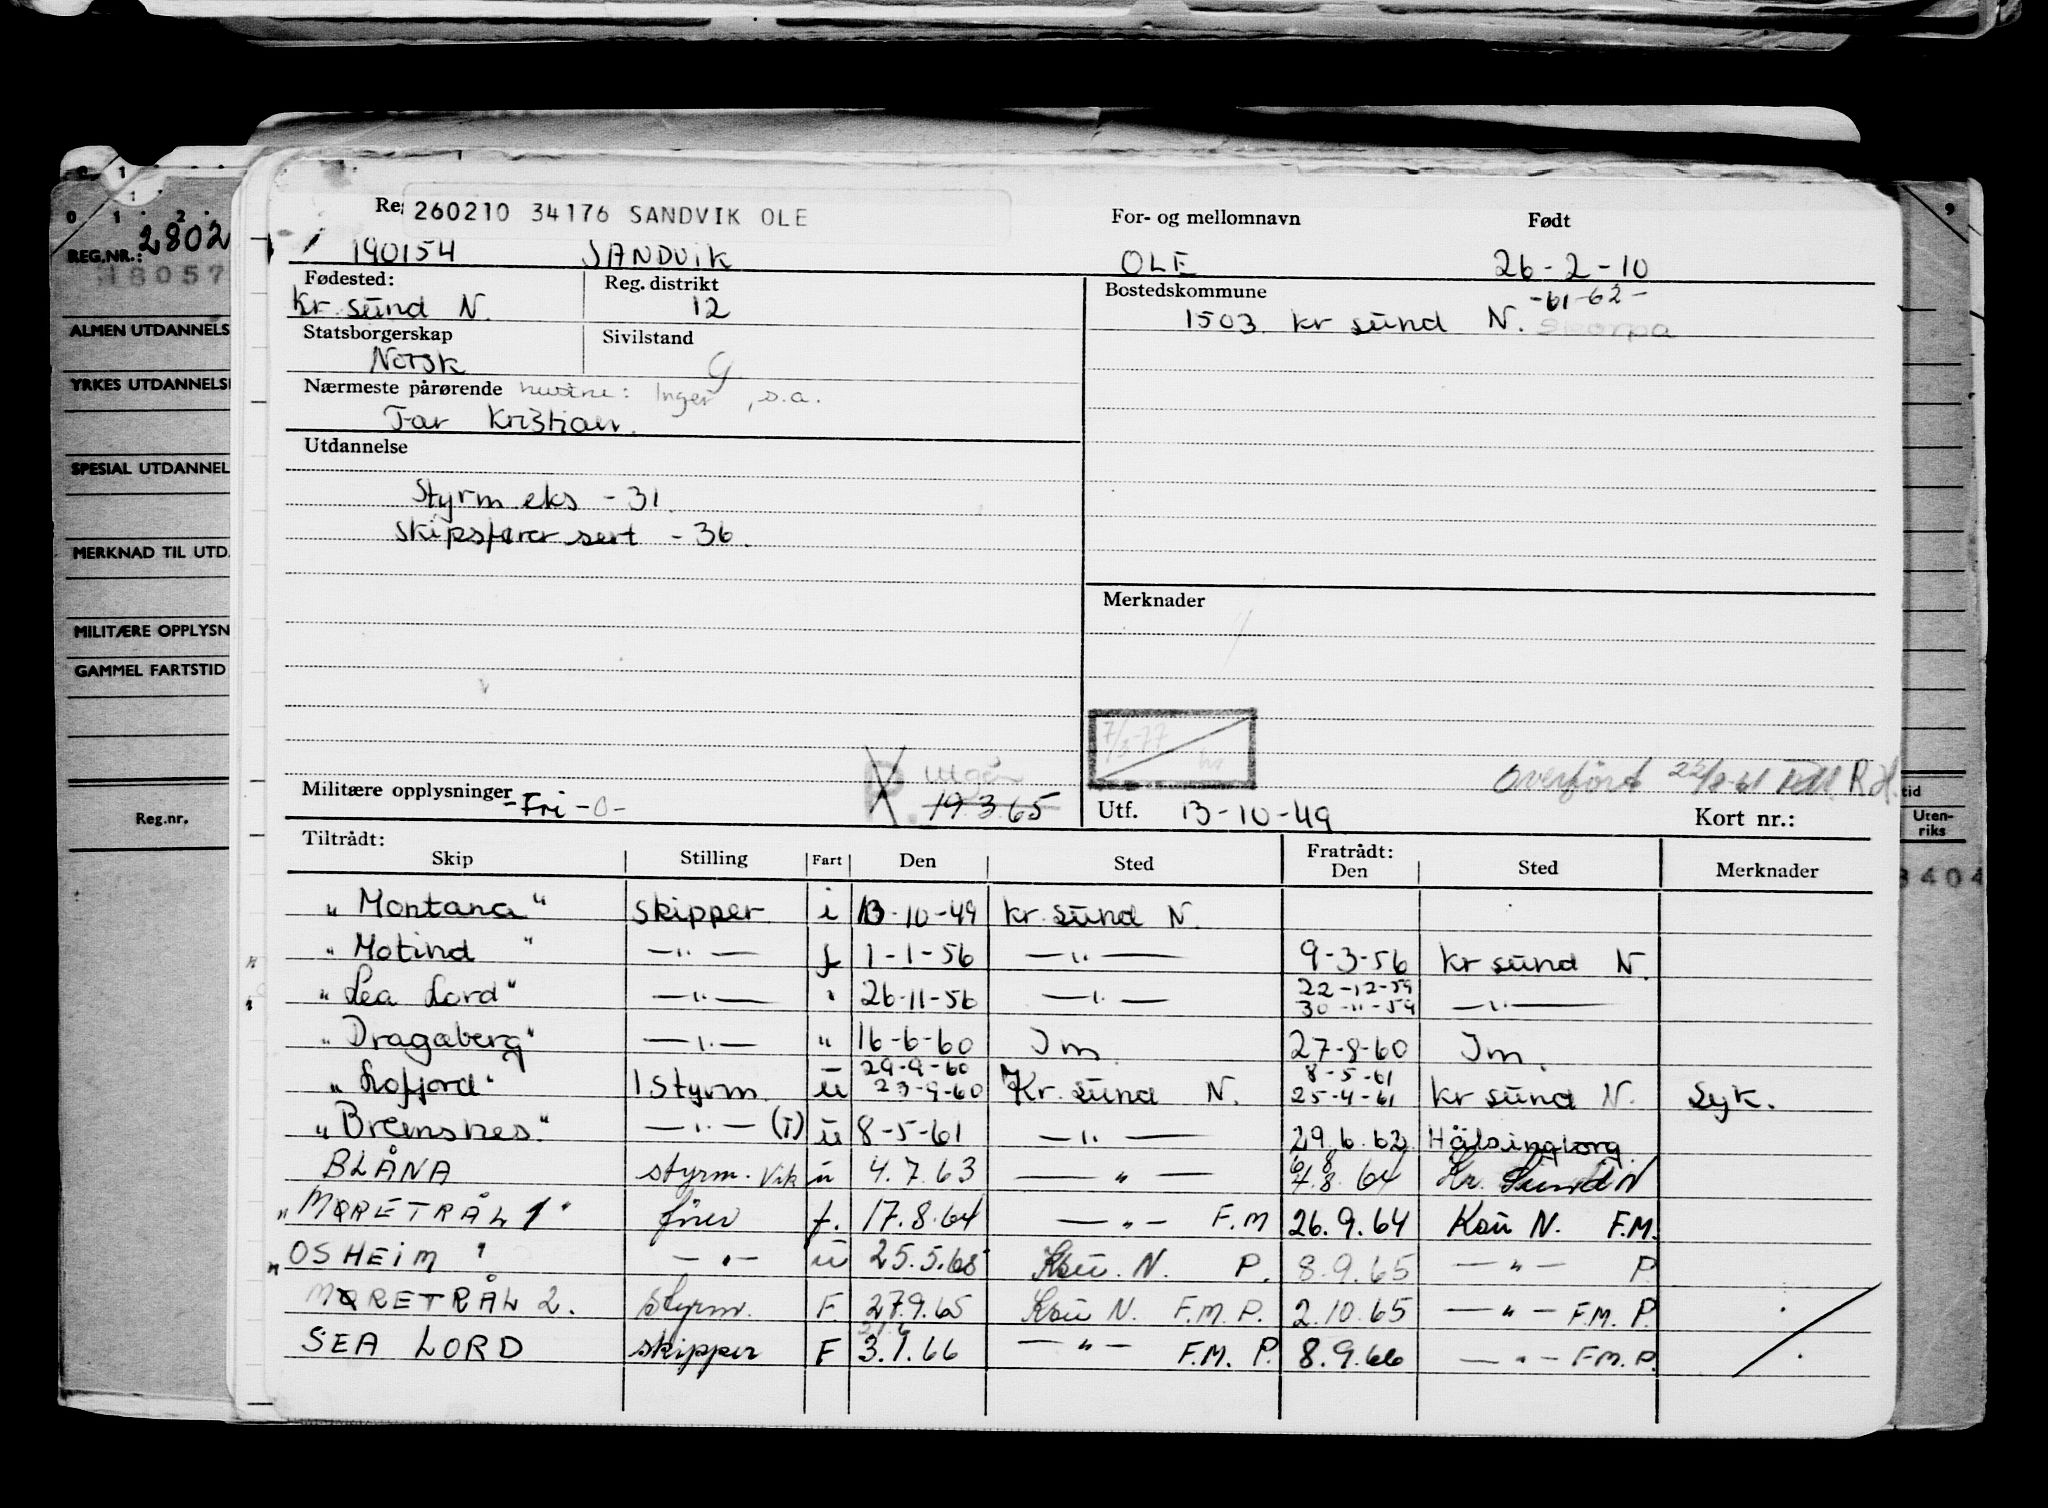 0 1 2
REG.NR.: 2802
18057
ALMEN UTDANNELS
YRKES UTDANNELS
SPESIAL UTDANNEL
MERKNAD TIL UTD.
MILITÆRE OPPLYSN
GAMMEL FARTSTID
Reg.nr.
tid
Uten-
riks
3404
Re 260210 34176 SANDVIK OLE For- og mellomnavn Født
190154 SANDVIK OLE 26-2-10
Fødested: Reg. distrikt Bostedskommune
Kr. sund N. 12 1503 Kr sund N. -61-62- Skorpa
Statsborgerskap Sivilstand
Norsk G
Nærmeste pårørende hustru: Inger, s.a.
Far Kristian.
Utdannelse
Styrm.eks - 31.
Skipsfører sert - 36.
Merknader
7/2-77
Overført 22/8-61 till R.H.
Militære opplysninger -Fri-0- P. utgår 19.3.65 Utf. 13-10-49 Kort nr.:
Tiltrådt: Fratrådt:
Skip Stilling Fart Den Sted Den Sted Merknader
"Montana" skipper i 13-10-49 kr. sund N.
"Motind" —"— f 1-1-56 —"— 9-3-56 kr sund N.
"Sea Lord" —"— " 26-11-56 —"— 22-12-59 30-11-59 —"—
"Dragaberg" —"— " 16-6-60 Im. 27-8-60 Im.
"Lofjord" 1 styrm. u 29-9-60 23-9-60 Kr. sund N. 8-5-61 25-4-61 kr sund N. Syk.
"Bremsnes" —"— (T) u 8-5-61 —"— 29.6.62 Hälsingborg.
BLÅNA styrm. Vik u 4.7.63 —"— 6 8 7.8.64 Kr. Sund N
"MØRETRÅL 1" fører f. 17.8.64 —"— F.M 26.9.64 Ksu N. F.M.
"OSHEIM" —"— u 25.5.65 Ksu. N. P. 8.9.65 —"— P
MØRETRÅL 2. Styrm. F. 27.9.65 Ksu N. F.M.P. 2.10.65 —"— F.M. P.
SEA LORD skipper F 3.1.66 —"— F.M. P. 8.9.66 —"— F.M.P.